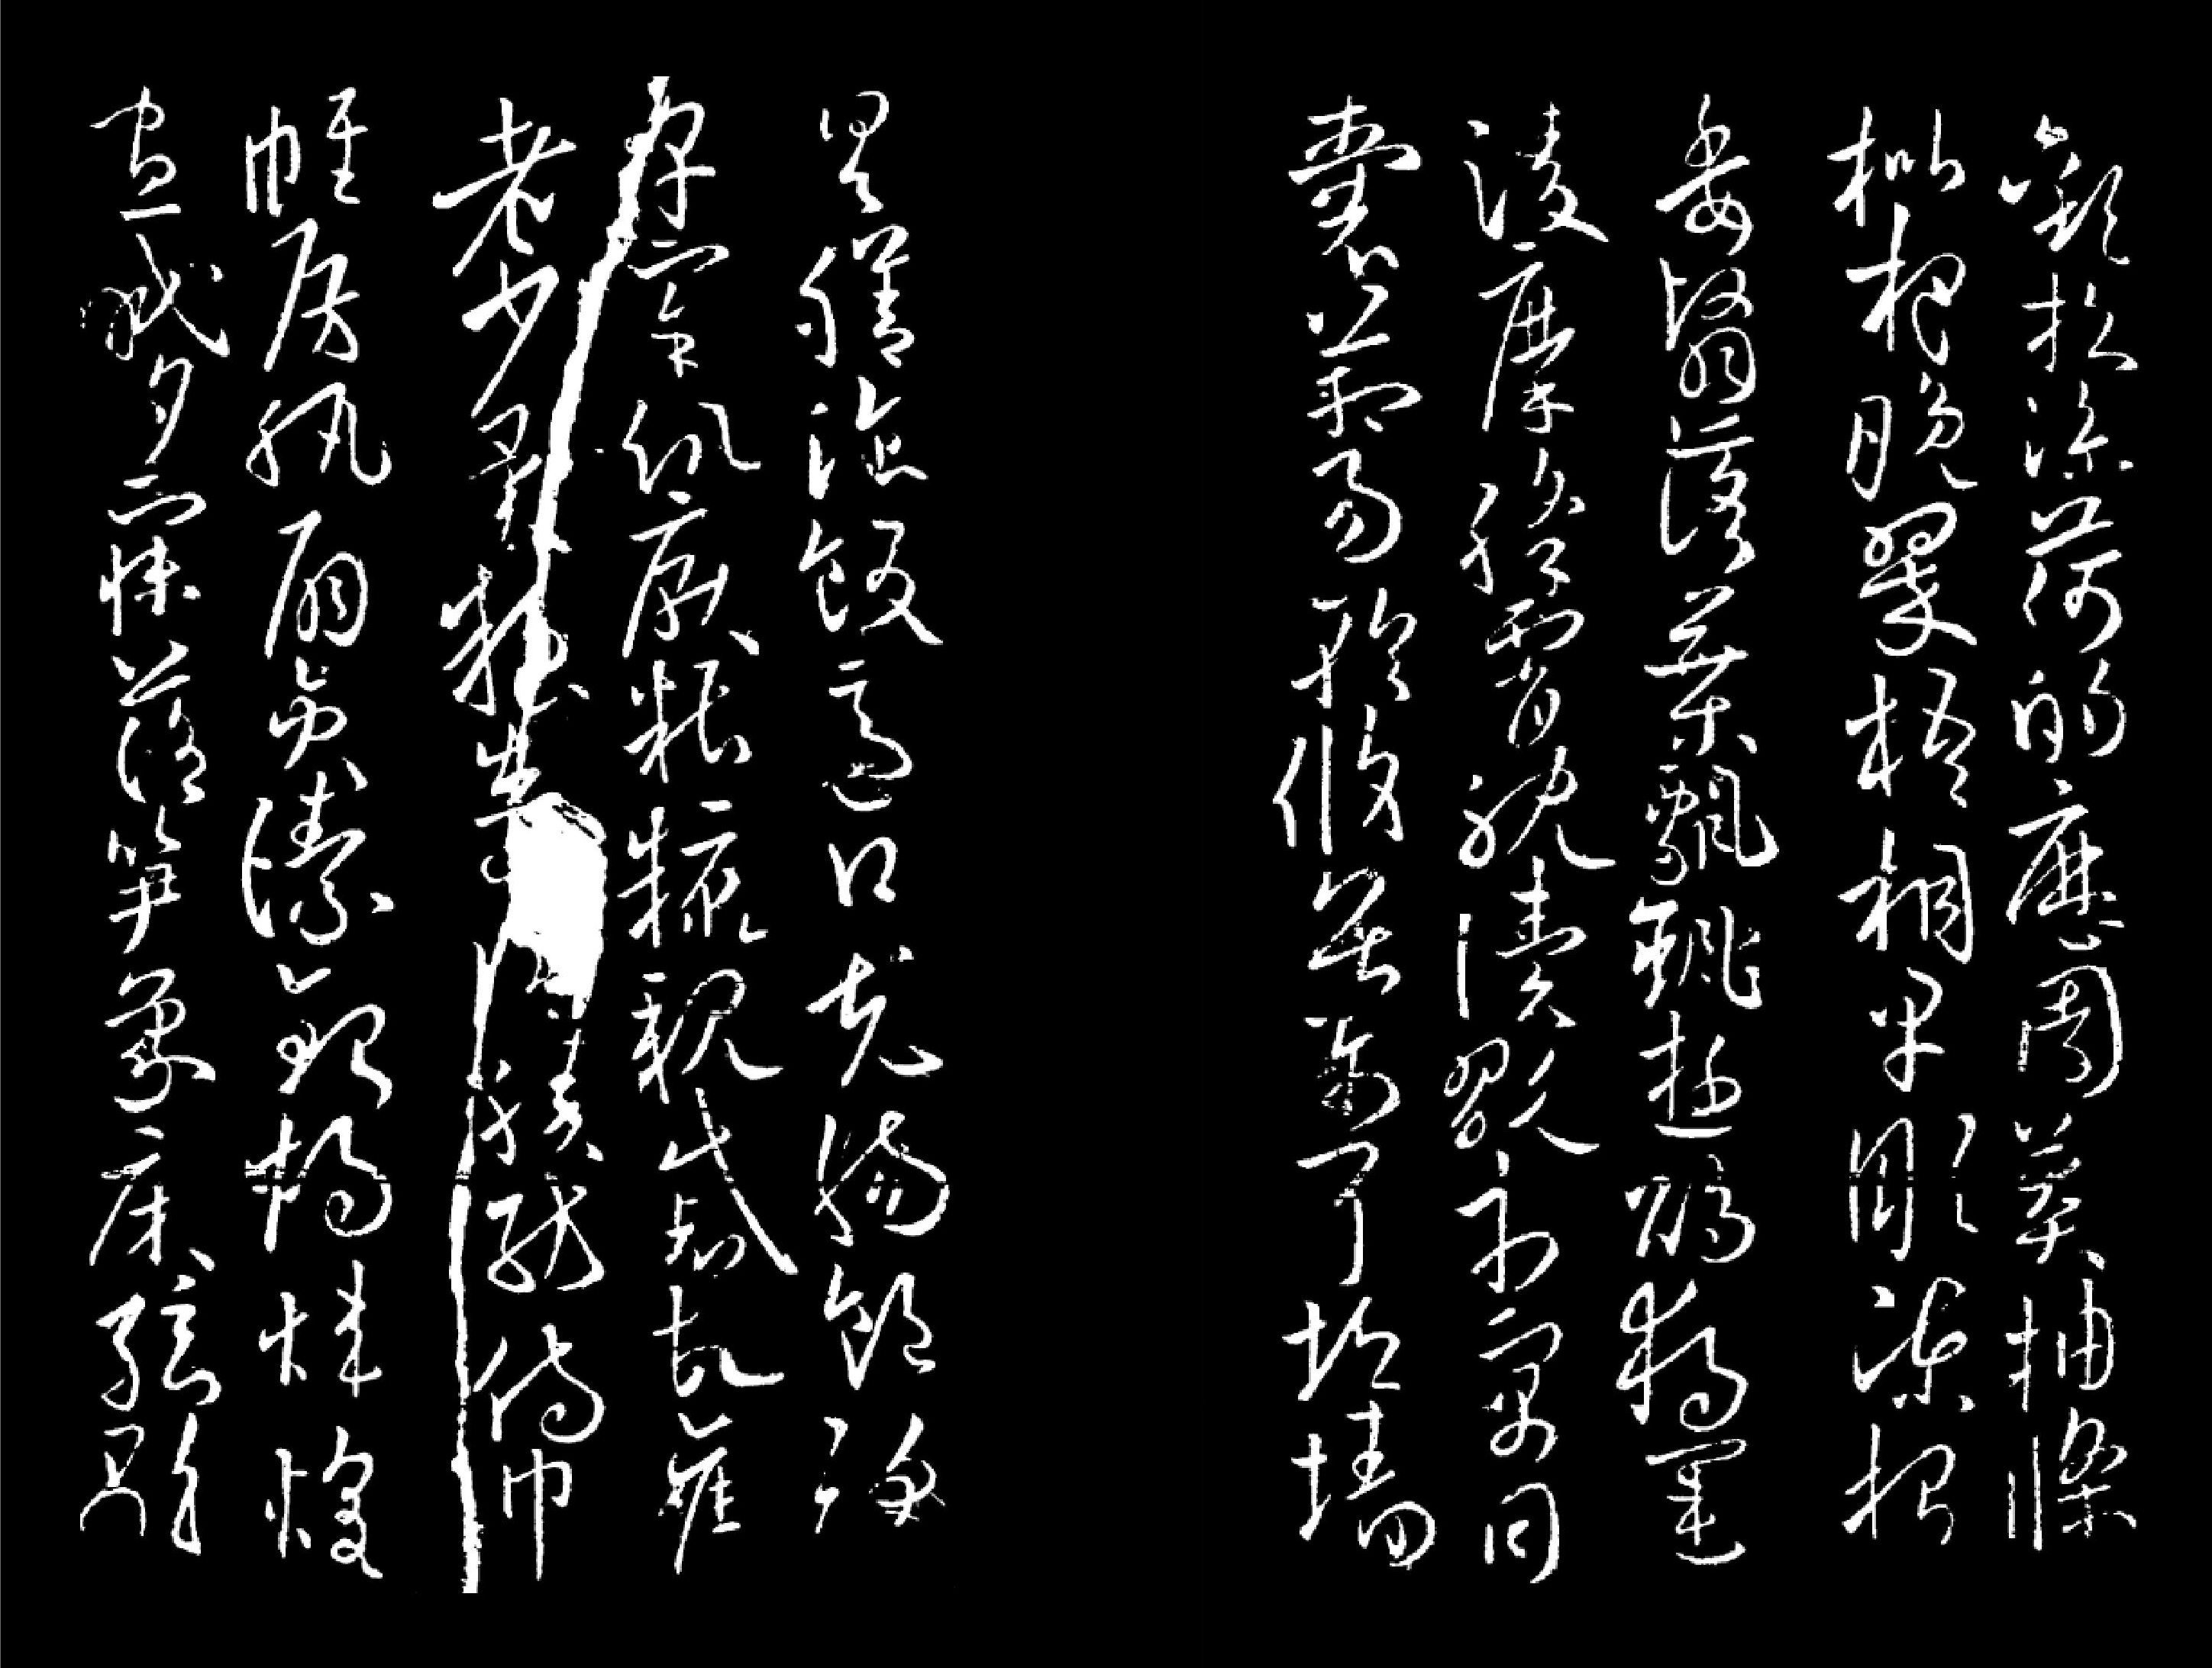 歡招渠荷的歷園莽抽條
枇杷晚翠梧桐早彫陳根
委翳落葉飄颻遊鵾獨運
淩摩絳霄耽讀翫市寓目
囊箱易輶攸畏屬耳垣墙
具膳飡飯適口充腸飽飫
烹宰飢厭糟糠親戚故舊
老少異糧妾績紡侍巾
帷房紈扇員潔銀燭煒煌
晝眠夕寐藍笋象床弦歌